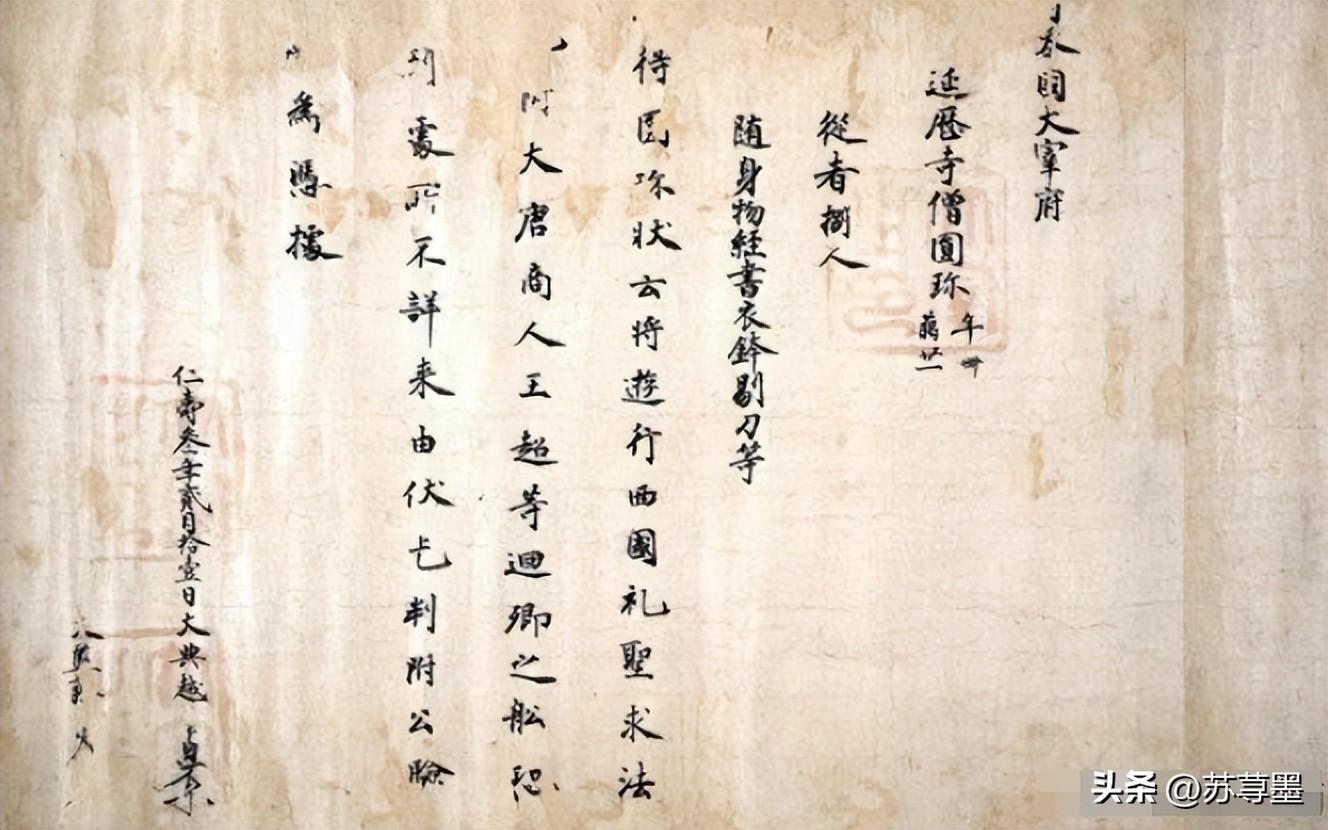 日本國大宰府
延曆寺僧圓珍 年卌 﨟廿一
從者捌人
随身物經書衣鉢剔刀等
得圓珍狀云將遊行西國礼聖求法
附大唐商人王超等迴鄉之舩恐
到處所不詳来由伏乞判附公驗
以為憑據
仁壽叁年貳月拾壹日大典越
頭条 @苏荨墨